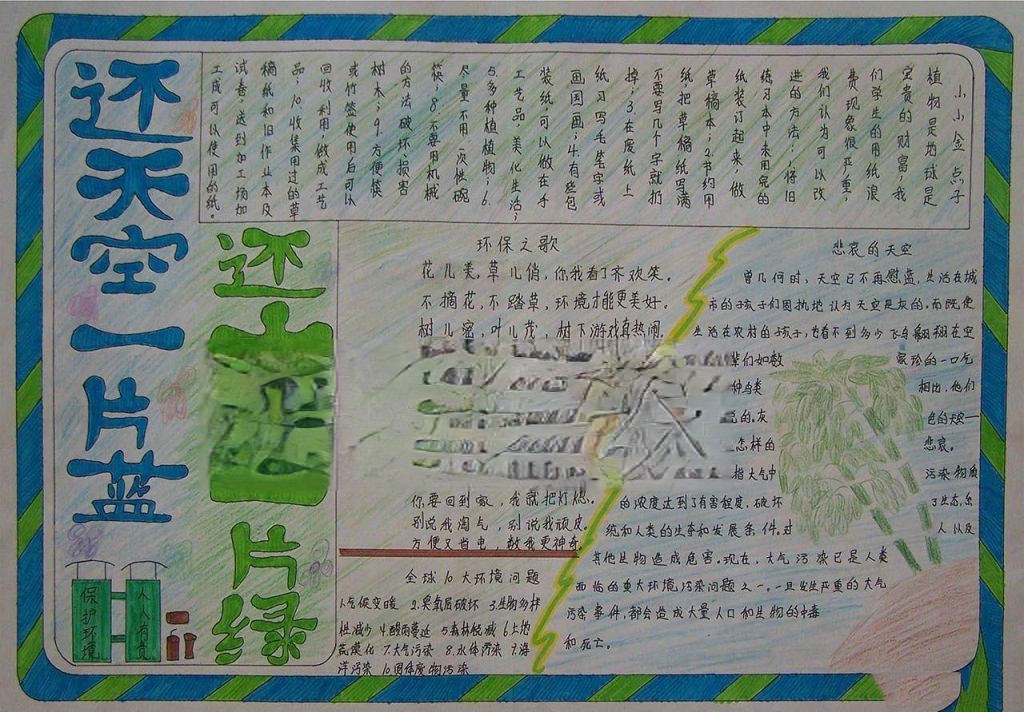 还天空一片蓝
还山
一片绿
小小金点子
植物是地球是
宝贵的财富,我
们学生的用纸浪
费现象很严重,
我们认为可以改
进的方法:1.将旧
练习本中未用完的
纸装订起来,做
草稿本;2.节约用
纸,把草稿纸写满
不要写几个字就扔
掉;3.在废纸上
练习写毛笔字或
画国画;4.有些包
装纸可以做在手
工艺品,美化生活;
5.多种植植物;6.
尽量不用一次性碗
筷;8.不要用机械
的方法破坏损害
树木;9.方便筷
或竹签使用后可以
回收利用,做成工艺
品;10.收集用过的草
稿纸和旧作业本及
试卷,送到加工场加
工成可以使用的纸。
环保之歌
花儿美,草儿俏,你我看了齐欢笑。
不摘花,不踏草,环境才能更美好。
树儿密,叶儿茂,树下游戏真热闹
你要回到家,我就把灯熄。
别说我淘气,别说我顽皮。
方便又省电,数我更神奇。
全球10大环境问题
1.气候变暖 2.臭氧层破坏 3.生物多样
性减少 4.酸雨蔓延 5.森林锐减 6.土地
荒漠化 7.大气污染 8.水体污染 9.海
洋污染 10.固体废物污染
悲哀的天空
曾几何时,天空已不再慰蓝,生活在城
市的孩子们固执地认为天空是灰的,而既使
生活在农村的孩子,也看不到多少飞鸟翱翔在空
辈们如数 家珍的一口气
种鸟类 相出,他们
的灰 色的天
怎样的 悲哀。
指大气中 污染物质
的浓度达到了有害程度,破坏 了生态系
统和人类的生存和发展条件,对 人以及
其他生物造成危害。现在,大气污染已是人类
面临的重大环境污染问题之一。一旦发生严重的大气
污染事件,都会造成大量人口和生物的中毒
和死亡。
保护环境
人人有责